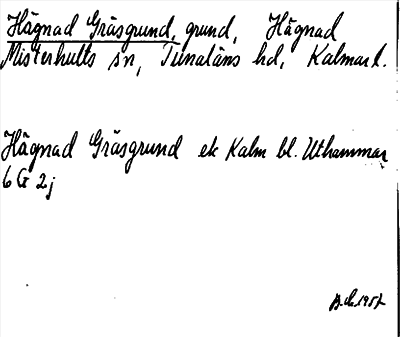 Hägnad Gräsgrund, grund, Hägnad
Misterhults sn, Tunaläns hd, Kalmar l.
Hägnad Gräsgrund ek Kalm bl. Uthammar
6 G 2j
1957